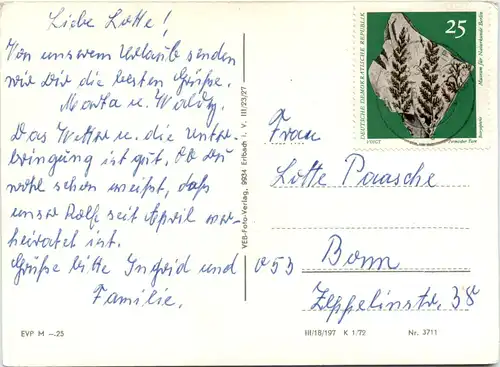 Liebe Lotte!
Von unserem Urlaub senden
wir Dir die besten Grüße.
Marta u.
Das Wetter u. die Unter-
bringung ist gut. Ob Du
wohl schon weißt, daß
unser Rolf seit April ver-
heiratet ist.
Grüße bitte Ingrid und
Familie.
EVP M –.25
VEB-Foto-Verlag, 9934 Erlbach i. V. III/23/27
DEUTSCHE DEMOKRATISCHE REPUBLIK
25
Museum für Naturkunde Berlin
VOIGT
Frau
Lotte Paasche
53
Bonn
Zeppelinstr. 38
III/18/197 K 1/72 Nr. 3711